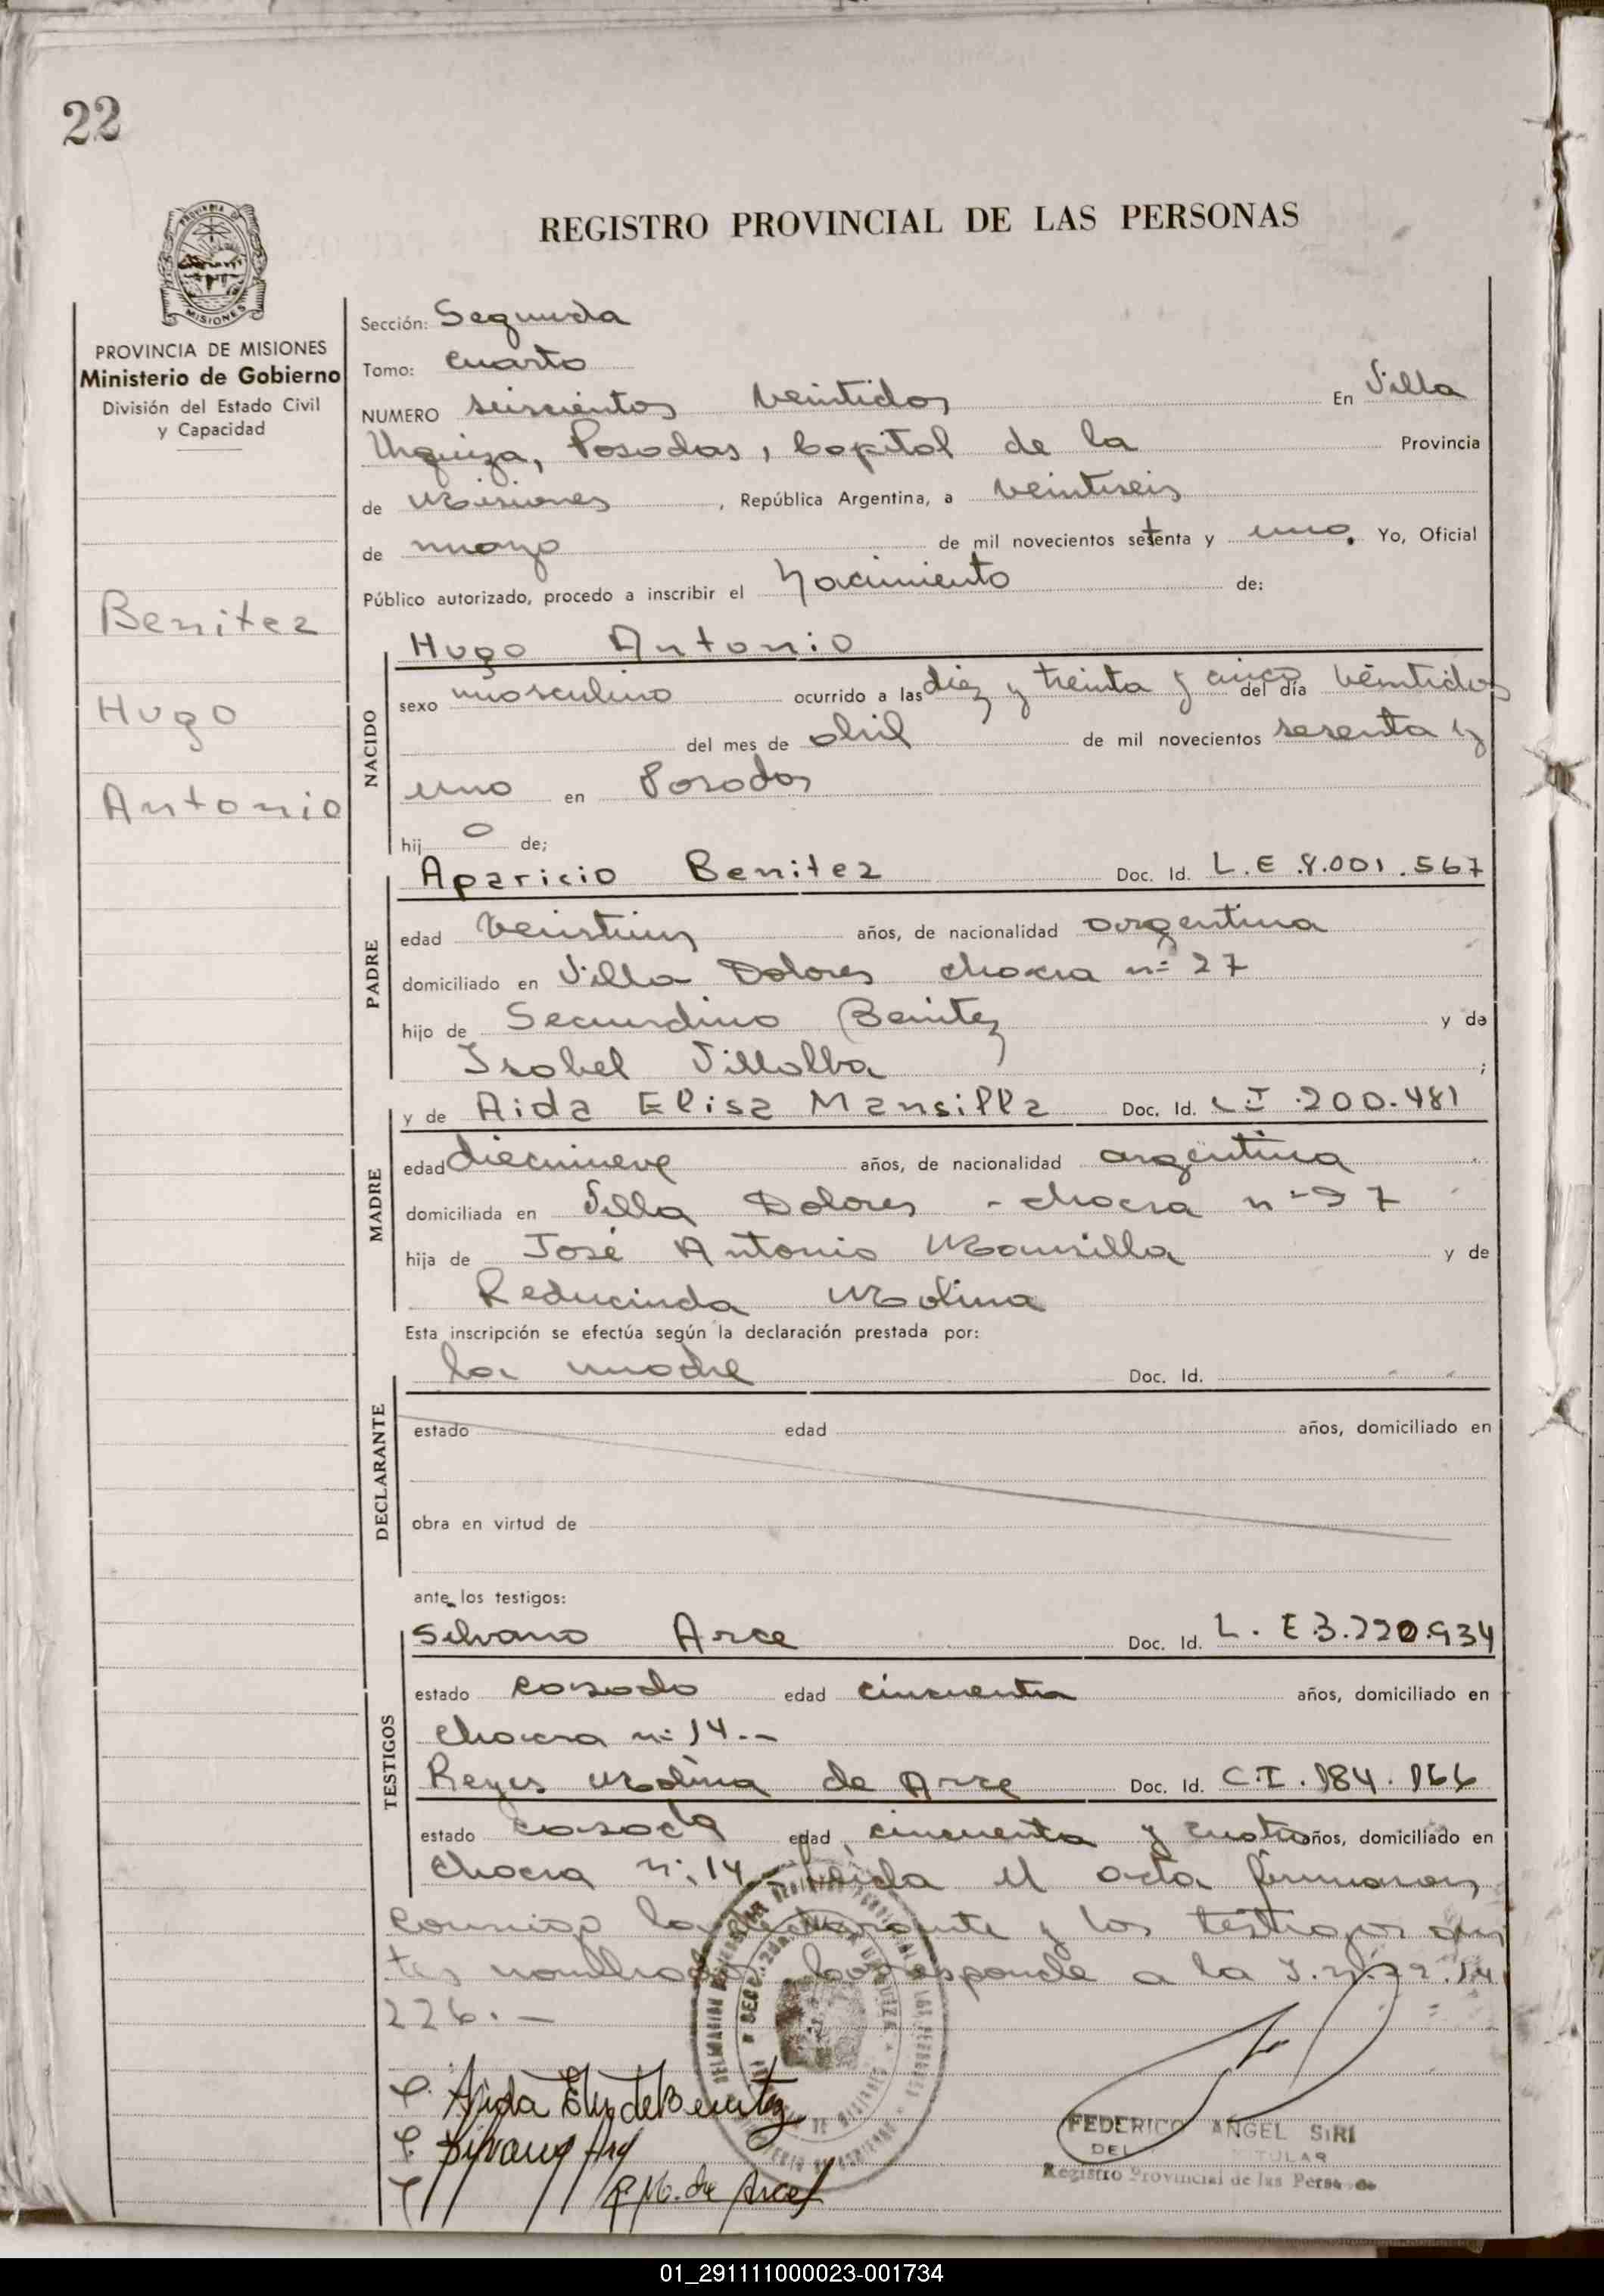 22
REGISTRO PROVINCIAL DE LAS PERSONAS
PROVINCIA DE MISIONES
MISIONES
PROVINCIA DE MISIONES
Ministerio de Gobierno
División del Estado Civil
y Capacidad
Benitez
Hugo
Antonio
Sección: Segunda
Tomo: cuarto
NUMERO seiscientos veintidos En Villa
Urquiza, Posadas, Capital de la Provincia
de Misiones, República Argentina, a veintiseis
de mayo de mil novecientos setenta y uno. Yo, Oficial
Público autorizado, procedo a inscribir el Nacimiento de:
Hugo Antonio
NACIDO
sexo masculino ocurrido a las diez y treinta y cinco del día veintidos
del mes de abril de mil novecientos sesenta y
uno en Posadas
hij o de;
Aparicio Benitez Doc. Id. L.E 8.001.567
PADRE
edad años, de nacionalidad argentina
domiciliado en Villa Dolores chacra n= 27
hijo de Secundino Benitez y de
Isabel Villalba ;
y de Aida Elisa Mansilla Doc. Id. 200.481
MADRE
edad diecinueve años, de nacionalidad argentina
domiciliada en Villa Dolores - chacra n=
hija de José Antonio Mansilla y de
Reducinda Molina
Esta inscripción se efectúa según la declaración prestada por:
la madre Doc. Id.
DECLARANTE
estado edad años, domiciliado en
obra en virtud de
ante los testigos:
Silvano Arce Doc. Id. L. E 3.220.934
TESTIGOS
estado casado edad cincuenta años, domiciliado en
chacra n= 14.-
Reyes Molina de Arce Doc. Id. C.I. 184.166
estado casada edad cincuenta y cuatro años, domiciliado en
chacra n: 14.- leida el acta firmaron
conmigo la declarante y los testigos an
tes nombrados. Corresponde a la
226.-
Aida de Benitez
Silvano Arce
R M. de Arce
FEDERICO ANGEL SIRI
DEL TITULAR
Registro Provincial de las Personas
01_291111000023-001734